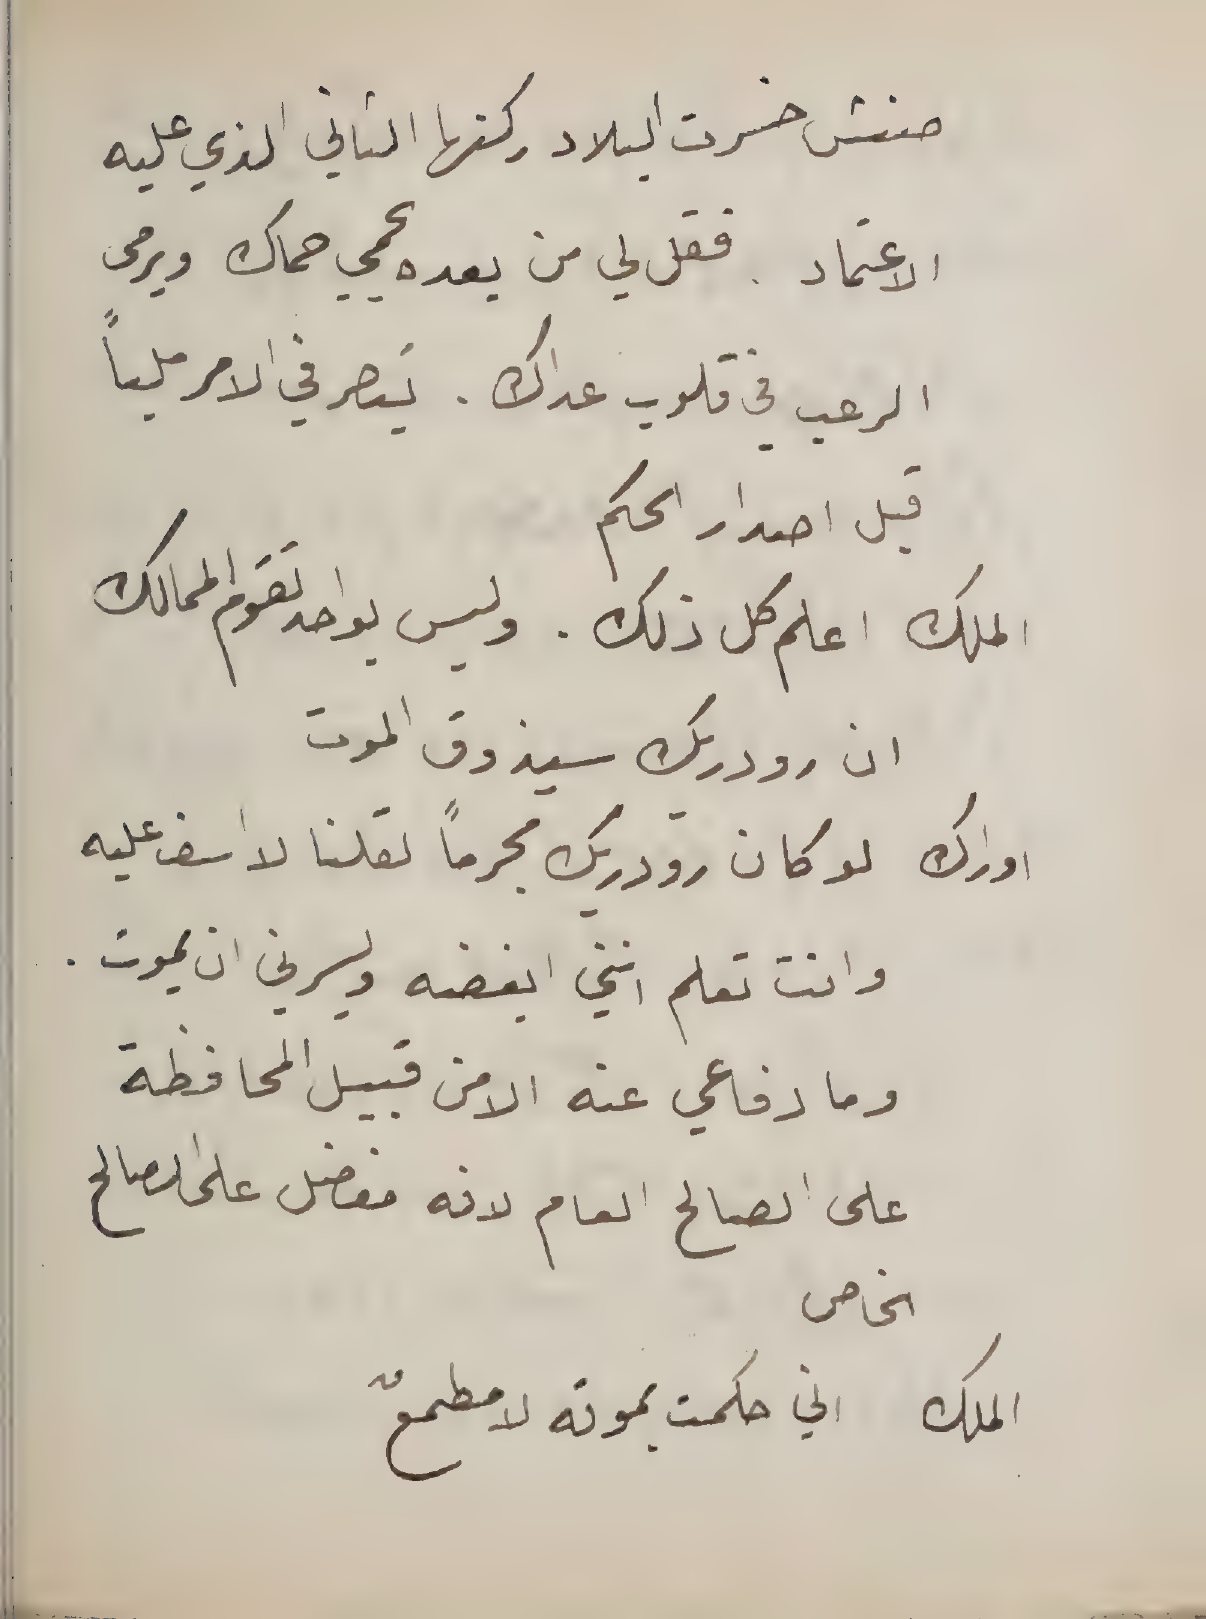 صنتش خسرت البلاد ركنها الثاني الذي عليه
الاعتماد . فقل لي من بعده يحمي حماك ويرمى
الرعب في قلوب عداك . تبصر في الامر ملياً
قبل اصدار الحكم
الملك اعلم كل ذلك . وليس بواحد تقوم الممالك
ان رودريك سيذوق الموت
اوراك لو كان رودريك مجرماً لقلنا لا اسف عليه
وانت تعلم انني ابغضه ويسرني ان يموت .
وما دفاعي عنه الا من قبيل المحافظة
على الصالح العام لانه مفضل على الصالح
الخاص
الملك اني حكمت بموته لا مطمع